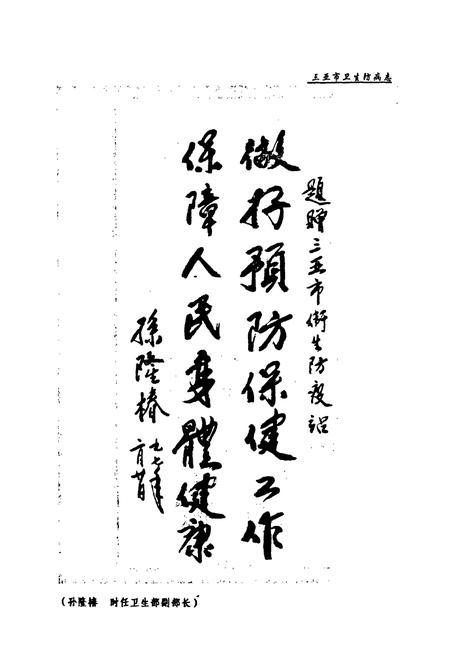 三亚市卫生防病志
題贈三亚市衛生防疫站
做好預防保健工作
保障人民身體健康
孫隆椿
九七年
(孙隆椿 时任卫生部副部长)